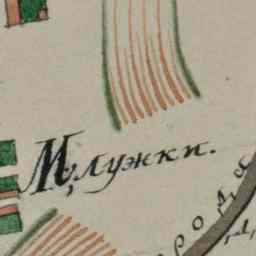 М, лужки.
рода